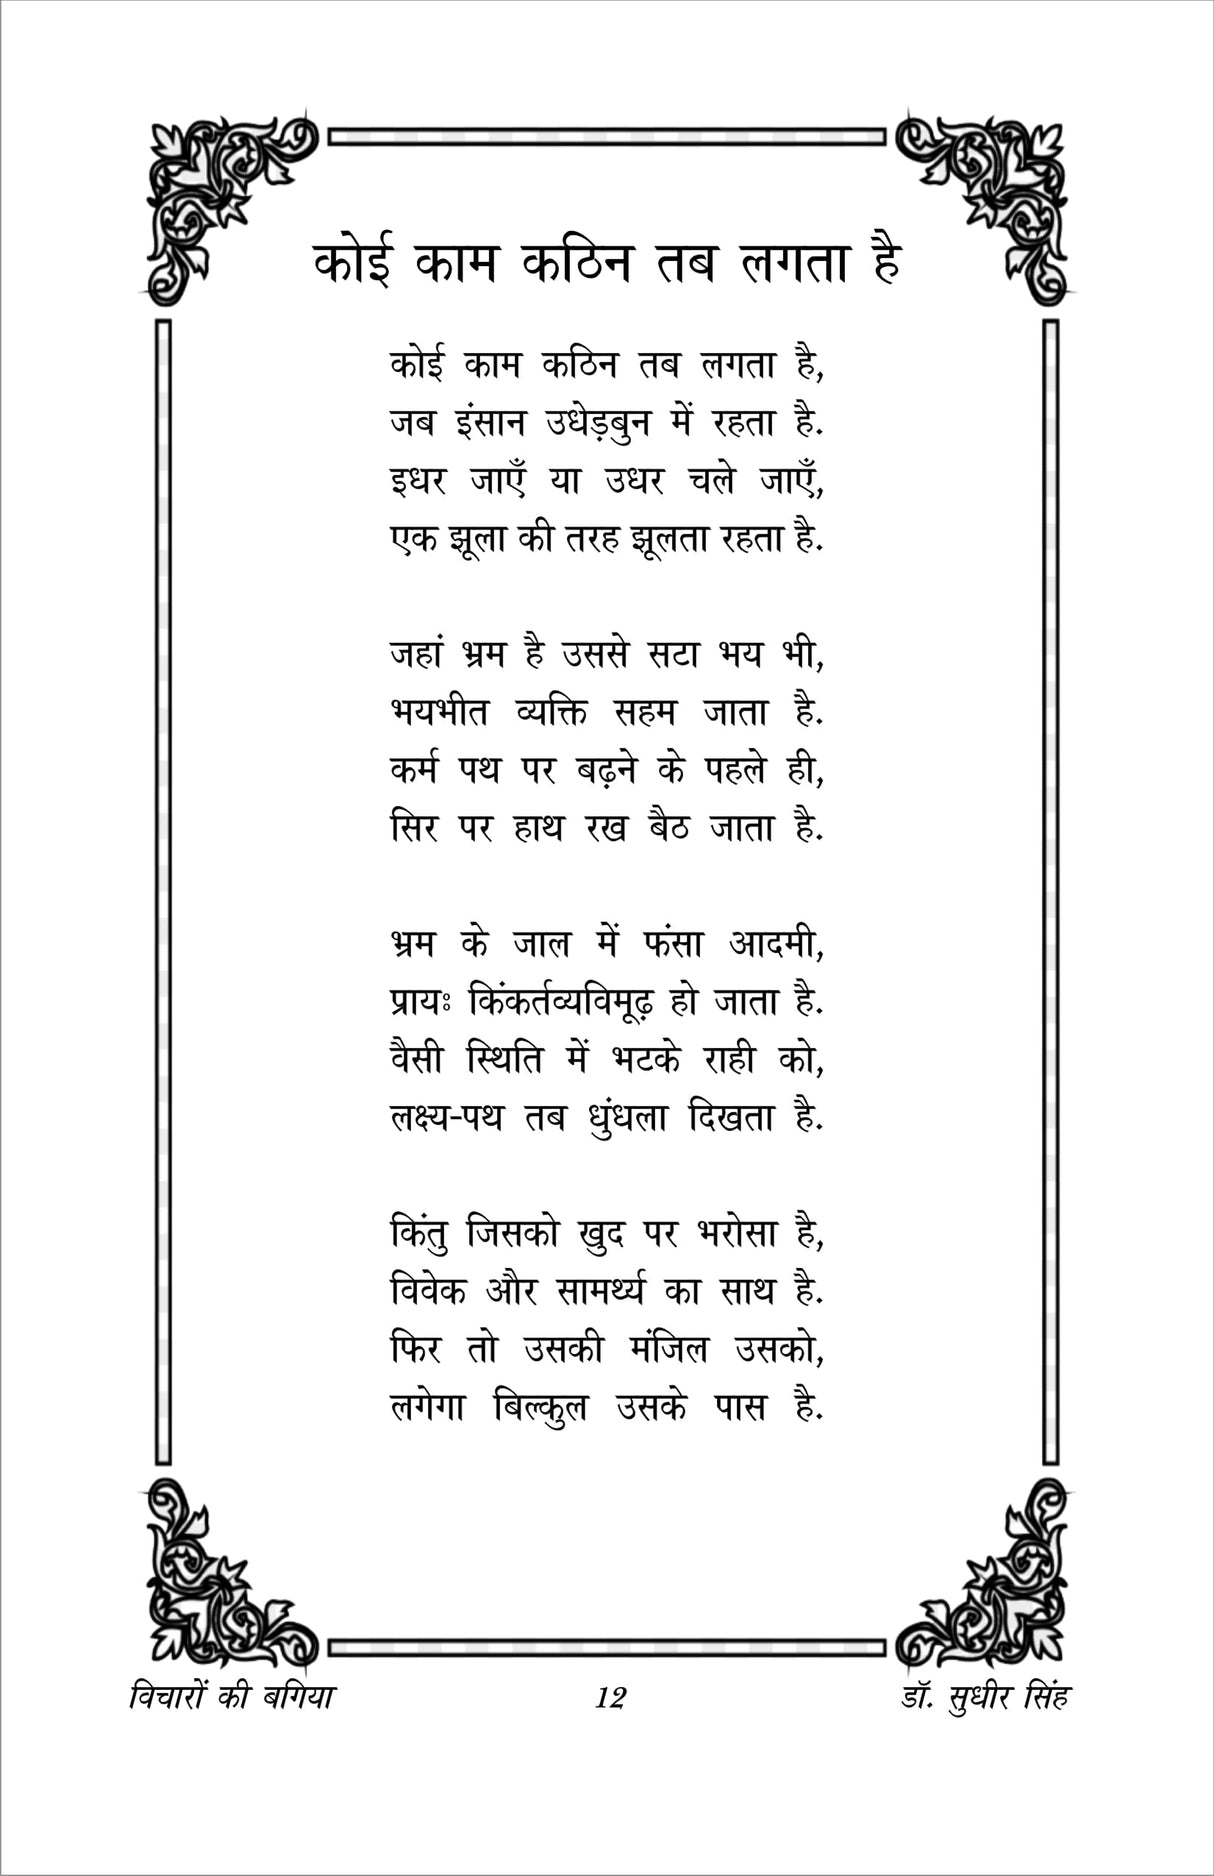 कोई काम कठिन तब लगता है
कोई काम कठिन तब लगता है,
जब इंसान उधेड़बुन में रहता है.
इधर जाएँ या उधर चले जाएँ,
एक झूला की तरह झूलता रहता है.
जहां भ्रम है उससे सटा भय भी,
भयभीत व्यक्ति सहम जाता है.
कर्म पथ पर बढ़ने के पहले ही,
सिर पर हाथ रख बैठ जाता है.
भ्रम के जाल में फंसा आदमी,
प्रायः किंकर्तव्यविमूढ़ हो जाता है.
वैसी स्थिति में भटके राही को,
लक्ष्य-पथ तब धुंधला दिखता है.
किंतु जिसको खुद पर भरोसा है,
विवेक और सामर्थ्य का साथ है.
फिर तो उसकी मंजिल उसको,
लगेगा बिल्कुल उसके पास है.
विचारों की बगिया 12 डॉ. सुधीर सिंह